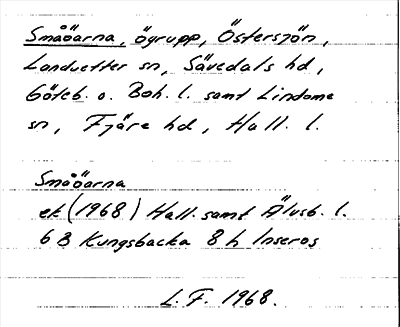 Småöarna, ögrupp, Östersjön,
Landvetter sn, Sävedals hd,
Göteb. o. Boh. l. samt Lindome
sn, Fjäre hd, Hall. l.
Småöarna
ek (1968) Hall. samt Älvsb. l.
6 B Kungsbacka 8 h Inseros
L.F. 1968.